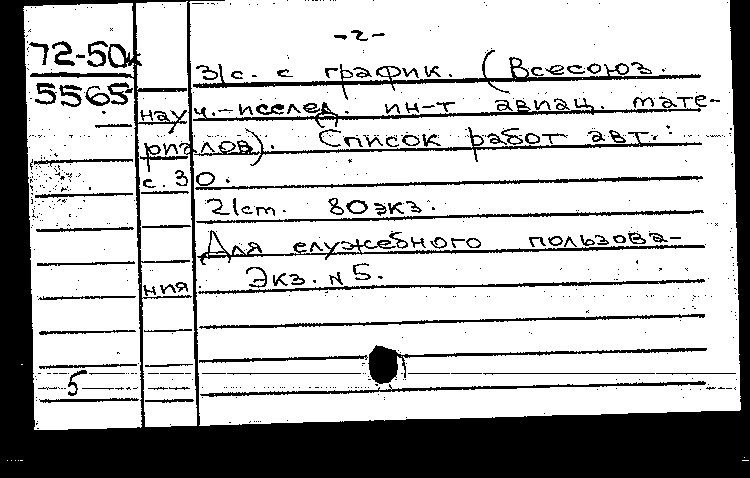 -2-
72-50к
5565
31с. с график. (Всесоюз.
науч.-исслед. ин-т авиац. мате-
риалов). Список работ авт.:
с. 30.
21см. 80экз.
Для служебного пользова-
ния. Экз. N 5.
5